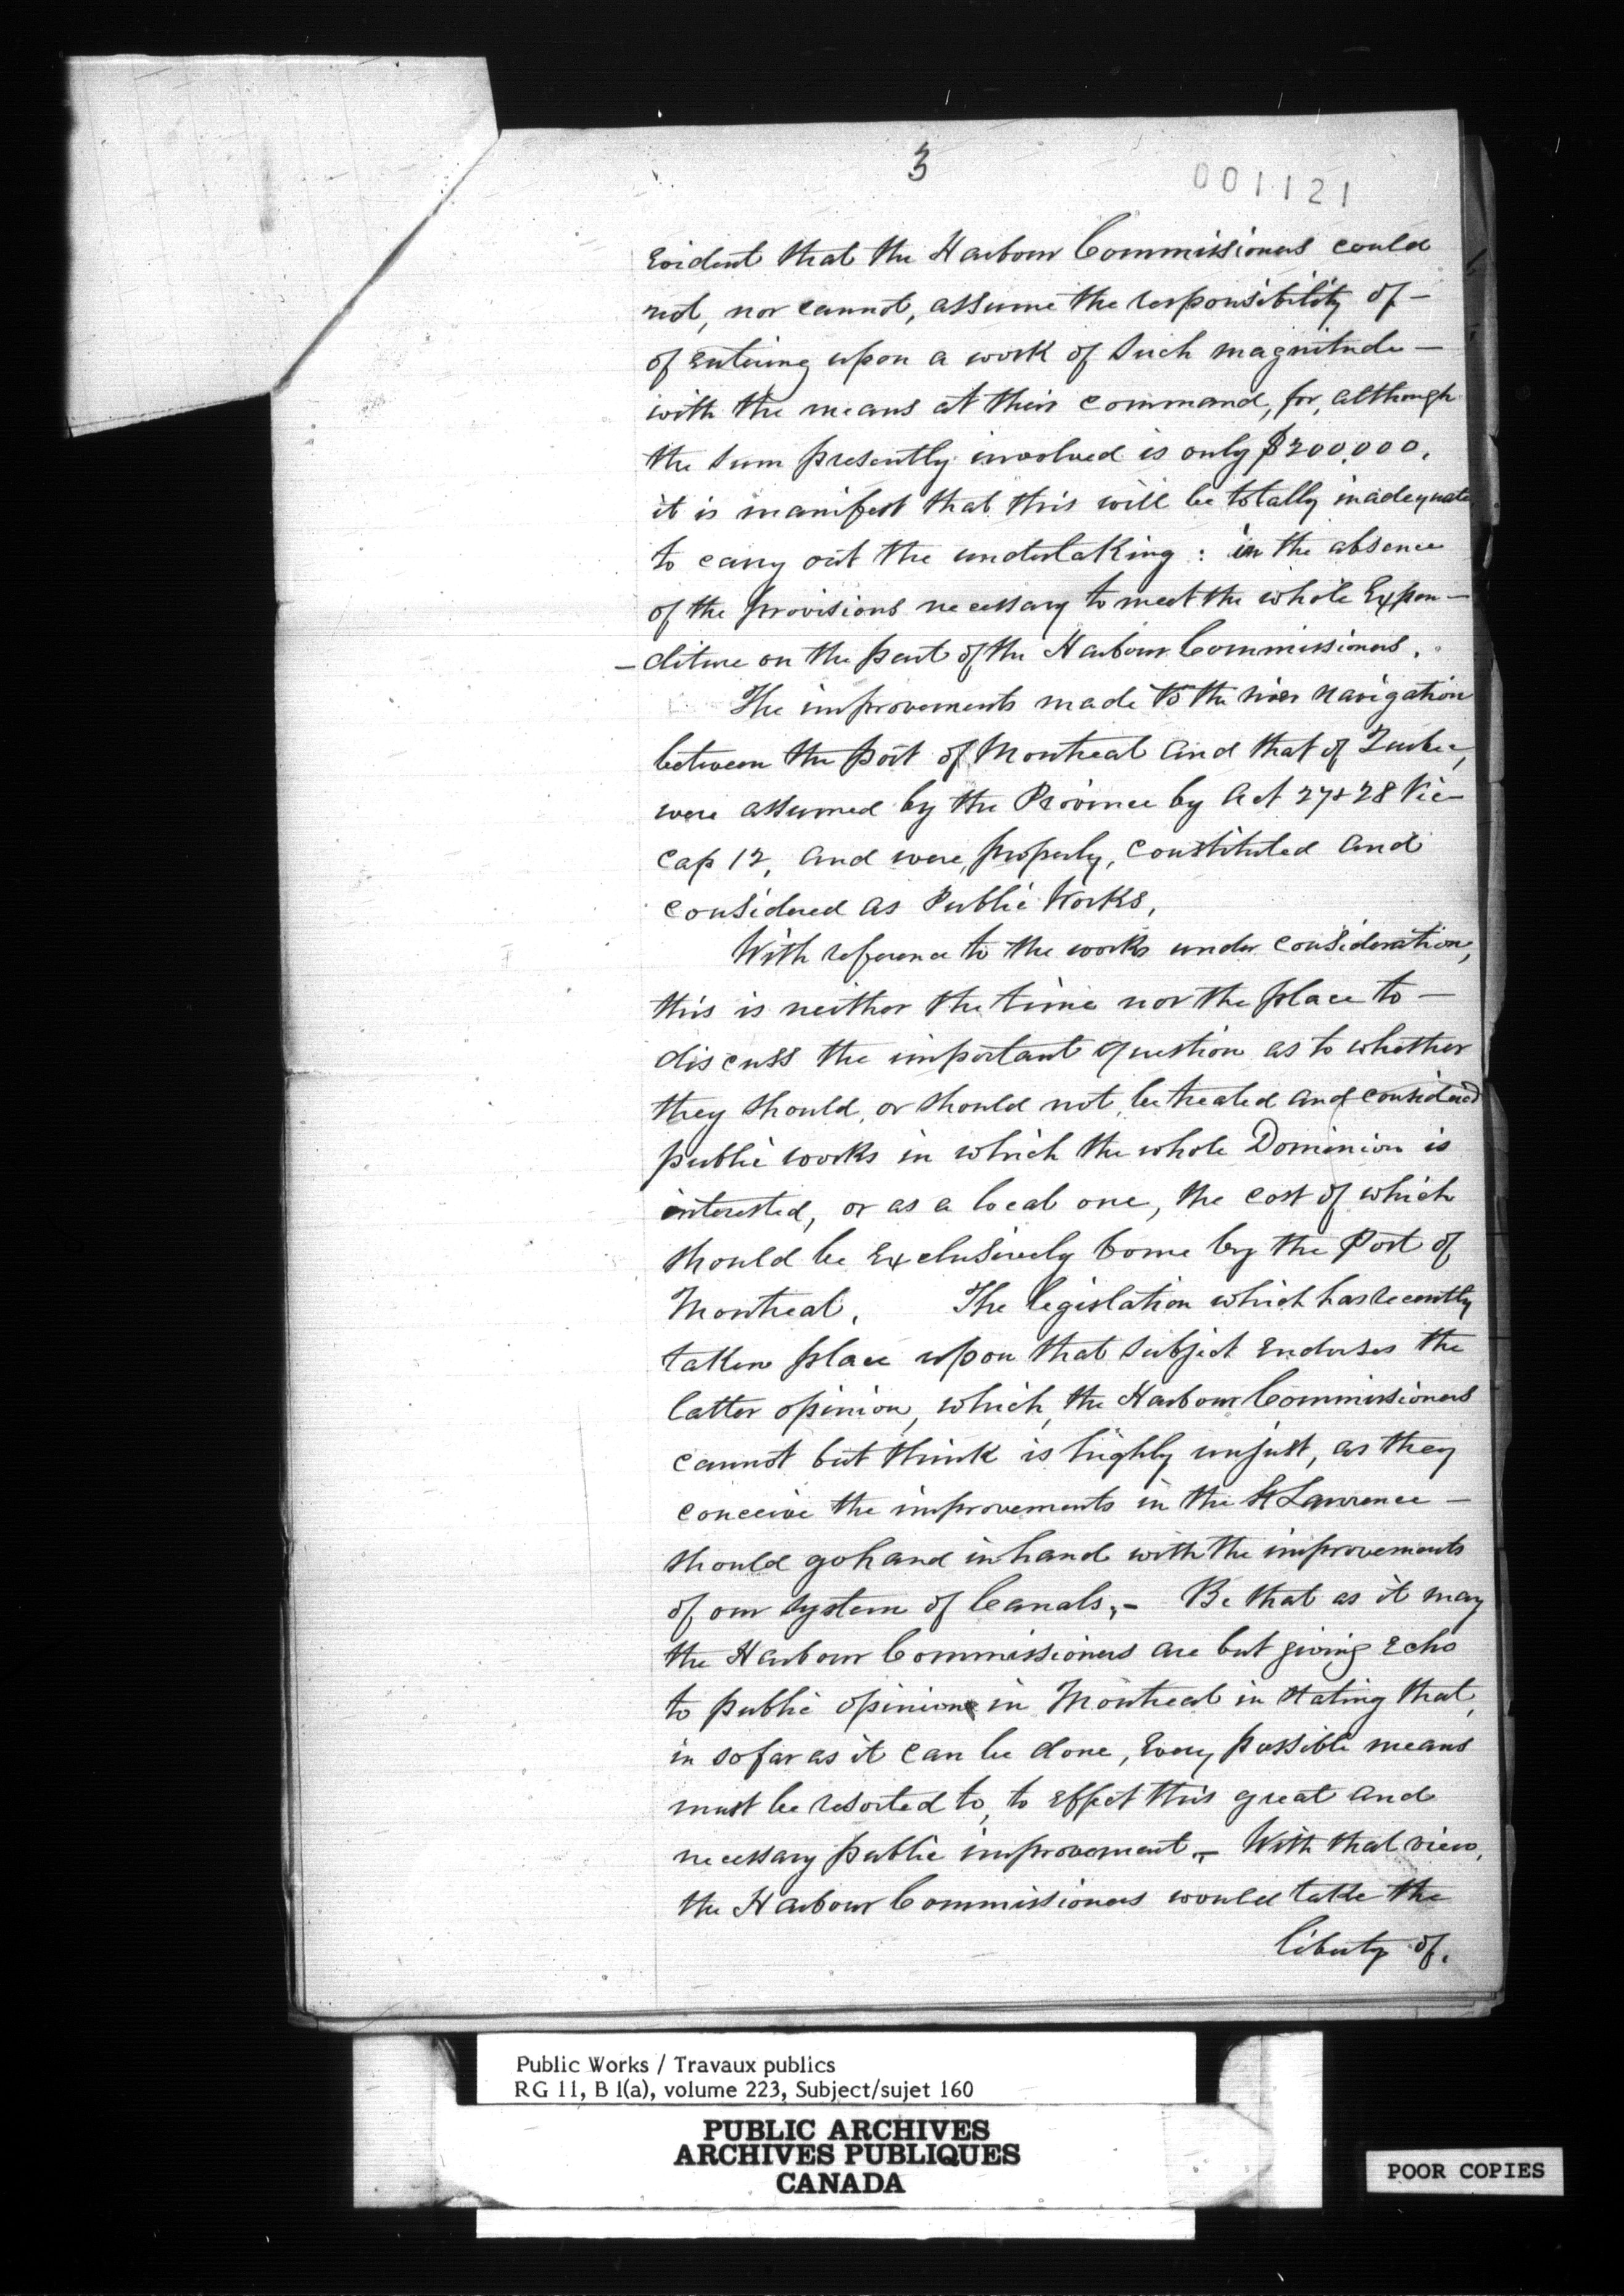 3
001121
Evident that the Harbour Commissioners could
not, nor cannot, assume the responsibility of —
of entering upon a work of such magnitude —
with the means at their command, for, although
the sum presently involved is only $200.000.
it is manifest that this will be totally inadequate
to carry out the undertaking : in the absence
of the provisions necessary to meet the whole Expen —
— diture on the part of the Harbour Commissioners.
The improvements made to the river navigation
between the port of Montreal and that of Quebec,
were assumed by the Province by Act 27 & 28 Vic —
Cap 12, and were, properly, constituted and
considered as Public Works,
With reference to the works under consideration,
this is neither the time nor the place to —
discuss the important question as to whether
they should, or should not, be treated and considered
public works in which the whole Dominion is
interested, or as a local one, the cost of which
should be Exclusively borne by the Port of
Montreal. The legislation which has recently
taken place upon that subject Endorses the
latter opinion, which, the Harbour Commissioners
cannot but think is highly unjust, as they
conceive the improvements in the St Lawrence —
should go hand in hand with the improvements
of our system of Canals, – Be that as it may
the Harbour Commissioners are but giving Echo
to public opinion in Montreal in stating that,
in so far as it can be done, Every possible means
must be resorted to, to Effect this great and
necessary public improvement. – With that view,
the Harbour Commissioners would take the
liberty of.
Public Works / Travaux publics
RG 11, B 1(a), volume 223, Subject/sujet 160
PUBLIC ARCHIVES
ARCHIVES PUBLIQUES
CANADA
POOR COPIES